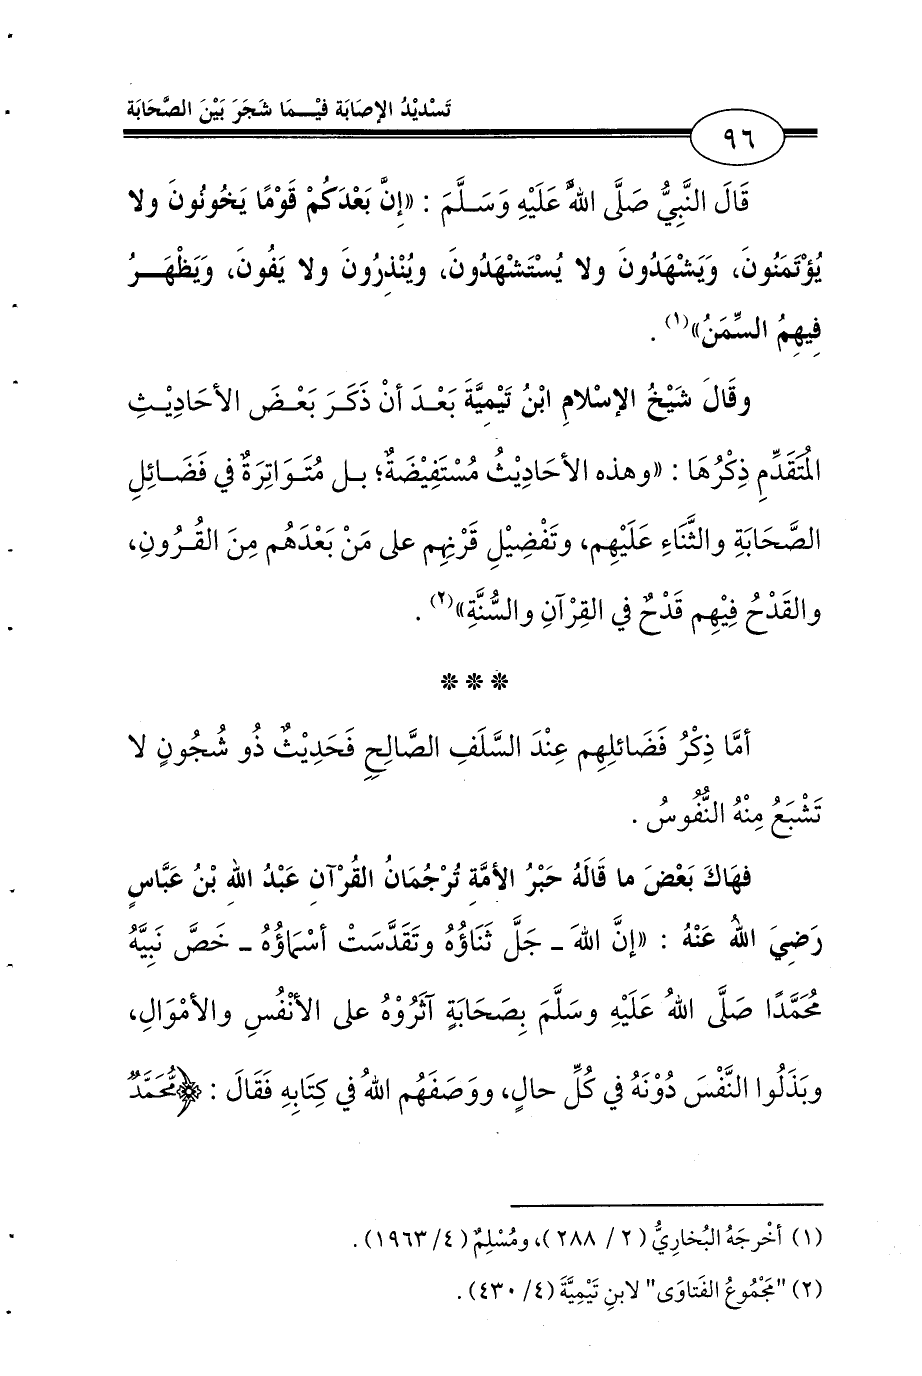 تَسْدِيْدُ الإصَابَة فيْمَا شَجَرَ بَيْنَ الصَّحَابَة
٩٦
قَالَ النَّبِيُّ صَلَّى اللهُ عَلَيْهِ وَسَلَّمَ : «إنَّ بَعْدَكُمْ قَوْمًا يَخُونُونَ ولا
يُؤْتَمَنُونَ، وَيَشْهَدُونَ ولا يُسْتَشْهَدُونَ، ويُنْذِرُونَ ولا يَفُونَ، وَيَظْهَرُ
فِيهِمُ السِّمَنُ»(١) .
وقَالَ شَيْخُ الإسْلامِ ابْنُ تَيْمِيَّةَ بَعْدَ أنْ ذَكَرَ بَعْضَ الأحَادِيْثِ
المُتَقَدِّمِ ذِكْرُهَا : «وهذه الأحَادِيْثُ مُسْتَفِيْضَةٌ؛ بل مُتَوَاتِرَةٌ في فَضَائِلِ
الصَّحَابَةِ والثَّنَاءِ عَلَيْهِم، وتَفْضِيْلِ قَرْنِهِم على مَنْ بَعْدَهُم مِنَ القُرُونِ،
والقَدْحُ فِيْهِم قَدْحٌ في القِرْآنِ والسُّنَّةِ»(٢) .
***
أمَّا ذِكْرُ فَضَائلِهِم عِنْدَ السَّلَفِ الصَّالِحِ فَحَدِيْثٌ ذُو شُجُونٍ لا
تَشْبَعُ مِنْهُ النُّفُوسُ .
فهَاكَ بَعْضَ ما قَالَهُ حَبْرُ الأمَّةِ تُرْجُمَانُ القُرْآنِ عَبْدُ اللهِ بْنُ عَبَّاسٍ
رَضِيَ اللهُ عَنْهُ : «إنَّ اللهَ ـ جَلَّ ثَنَاؤُهُ وتَقَدَّسَتْ أسْمَاؤُهُ ـ خَصَّ نَبِيَّهُ
مُحَمَّدًا صَلَّى اللهُ عَلَيْهِ وسَلَّمَ بِصَحَابَةٍ آثَرُوْهُ على الأنْفُسِ والأمْوَالِ،
وبَذَلُوا النَّفْسَ دُوْنَهُ في كُلِّ حالٍ، ووَصَفَهُم اللهُ في كِتَابِهِ فَقَالَ : ﴿مُّحَمَّدٌ
(١) أخْرجَهُ البُخاريُّ (٢/ ٢٨٨)، ومُسْلِمٌ (٤/ ١٩٦٣) .
(٢) "مَجْمُوعُ الفَتاوَى" لابنِ تَيْمِيَّةَ (٤/ ٤٣٠) .